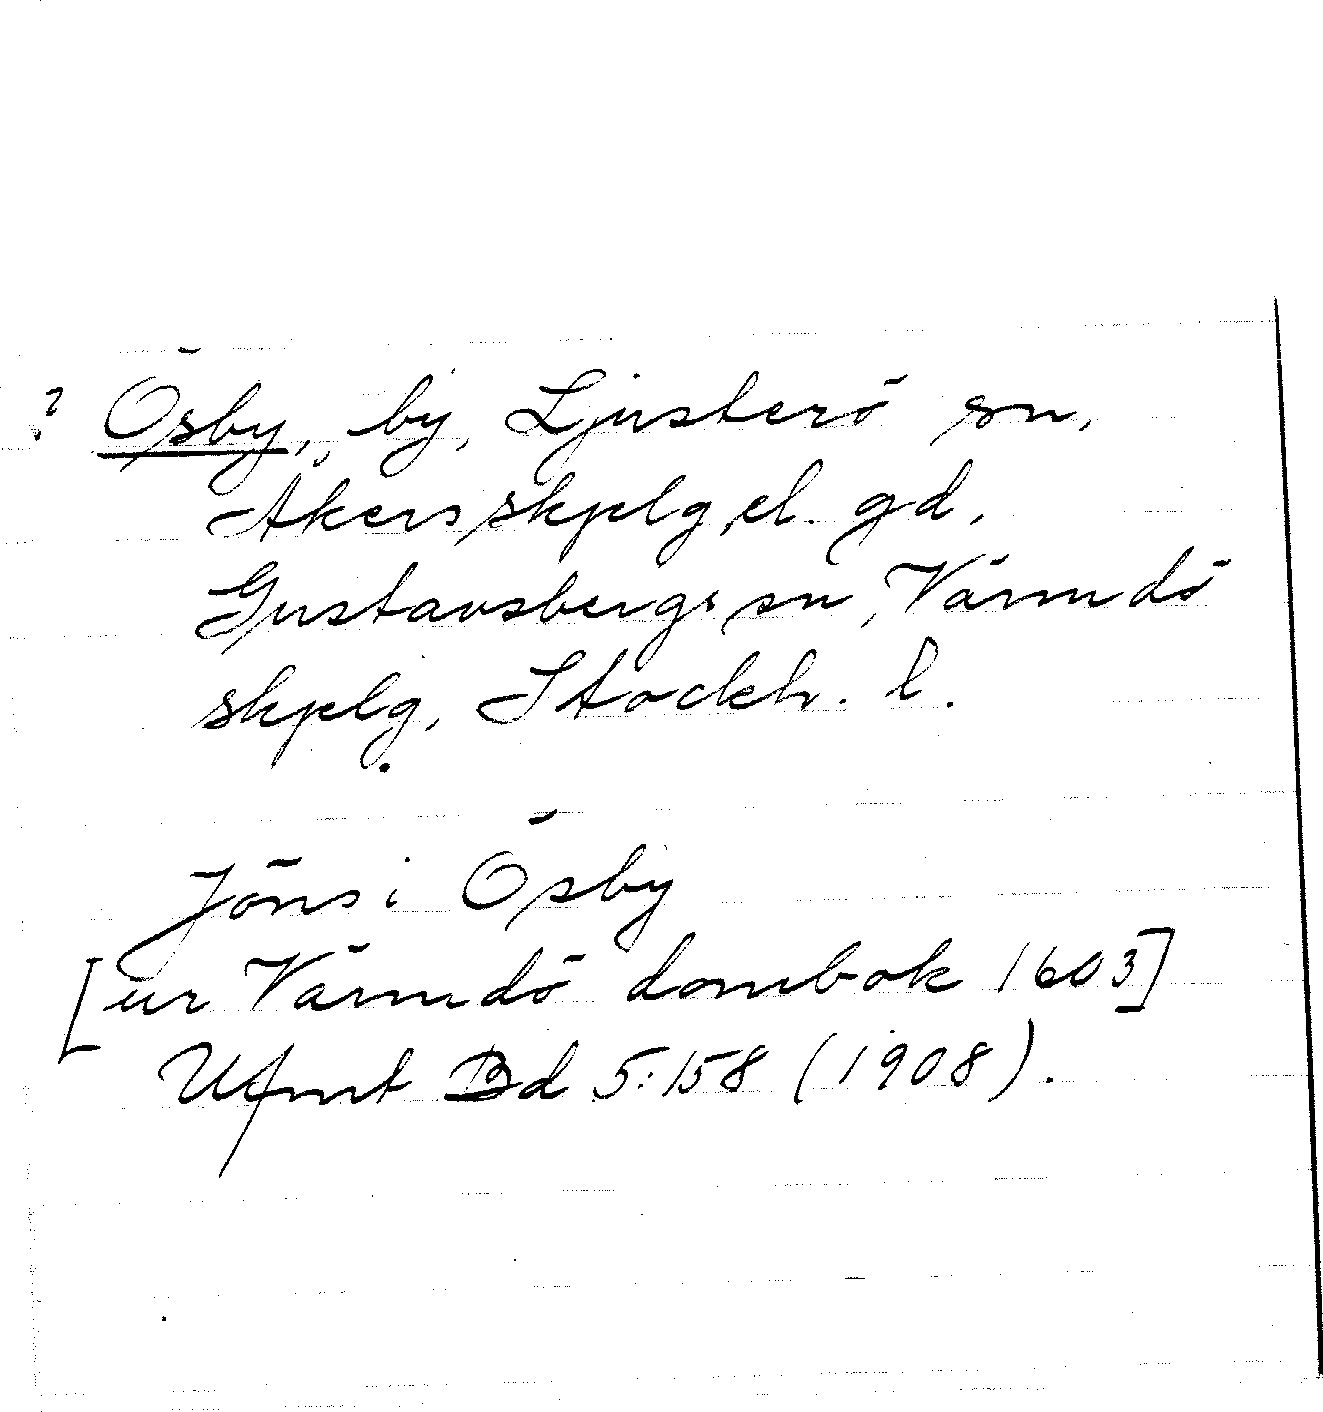 ? Ösby, by, Ljusterö sn,
Åkers skplg, el. gd,
Gustavsbergs sn, Värmdö
skplg, Stockh. l.
Jöns i Ösby
[ur Värmdö dombok 1603]
Ufmt Bd 5:158 (1908).